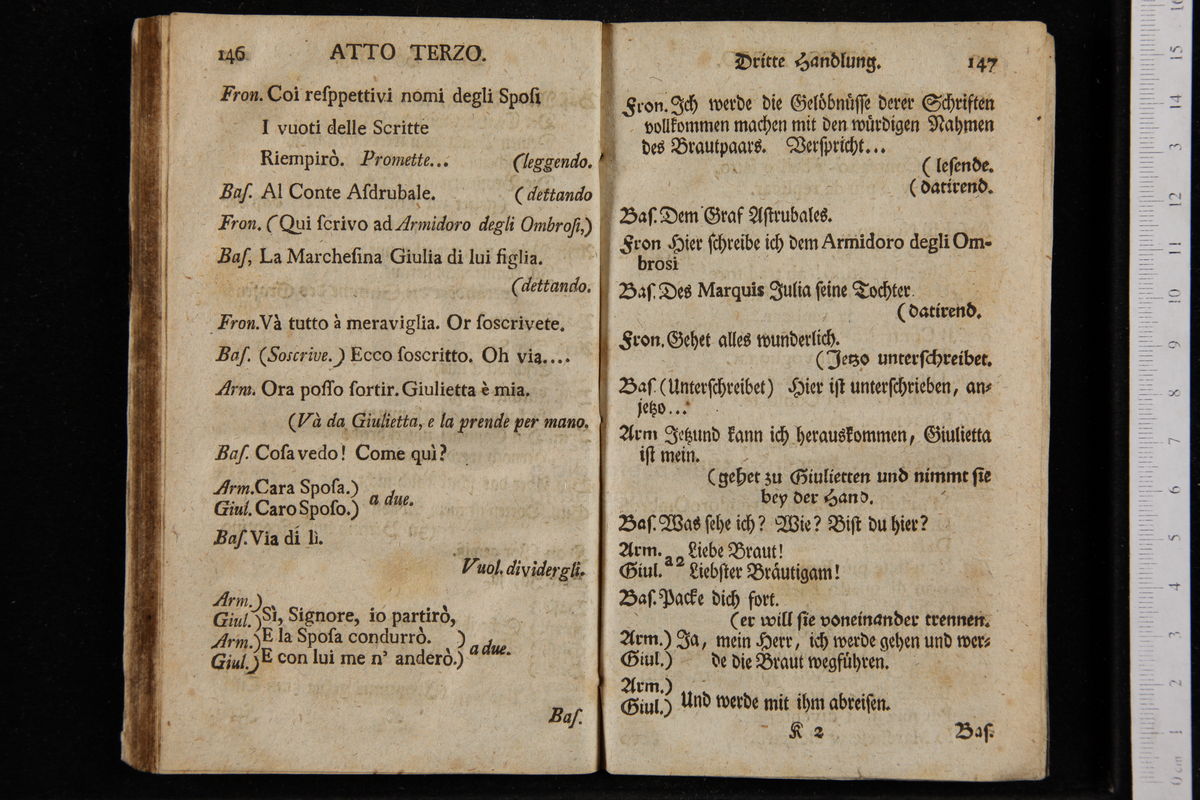 146 ATTO TERZO.
Fron. Coi reſppettivi nomi degli Spoſi
I vuoti delle Scritte
Riempirò. Promette... (leggendo.
Baſ. Al Conte Aſdrubale. (dettando
Fron. (Qui ſcrivo ad Armidoro degli Ombroſi,)
Baſ, La Marcheſina Giulia di lui figlia.
(dettando.
Fron. Và tutto à meraviglia. Or ſoscrivete.
Baſ. (Soscrive.) Ecco ſoscritto. Oh via....
Arm. Ora poſſo ſortir. Giulietta è mia.
(Và da Giulietta, e la prende per mano.
Baſ. Coſa vedo! Come quì?
Arm. Cara Spoſa.)
Giul. Caro Spoſo.) a due.
Baſ. Via di lì.
Vuol. dividergli.
Arm.)
Giul.) Sì, Signore, io partirò,
Arm.) E la Spoſa condurrò. )
Giul.) E con lui me n' anderò.) a due.
Baſ.
Dritte Handlung. 147
Fron. Ich werde die Gelöbnüſſe derer Schriften
vollkommen machen mit den würdigen Nahmen
des Brautpaars. Verſpricht...
(leſende.
(datirend.
Baſ. Dem Graf Aſtrubales.
Fron Hier ſchreibe ich dem Armidoro degli Om-
brosi
Baſ. Des Marquis Julia ſeine Tochter.
(datirend.
Fron. Gehet alles wunderlich.
(Jetzo unterſchreibet.
Baſ. (Unterſchreibet) Hier iſt unterſchrieben, an-
jetzo...
Arm Jetzund kann ich herauskommen, Giulietta
iſt mein.
(gehet zu Giulietten und nimmt ſie
bey der Hand.
Baſ. Was ſehe ich? Wie? Biſt du hier?
Arm. Liebe Braut!
Giul. a 2 Liebſter Bräutigam!
Baſ. Packe dich fort.
(er will ſie voneinander trennen.
Arm.) Ja, mein Herr, ich werde gehen und wer-
Giul.) de die Braut wegführen.
Arm.)
Giul.) Und werde mit ihm abreiſen.
K 2 Baſ.